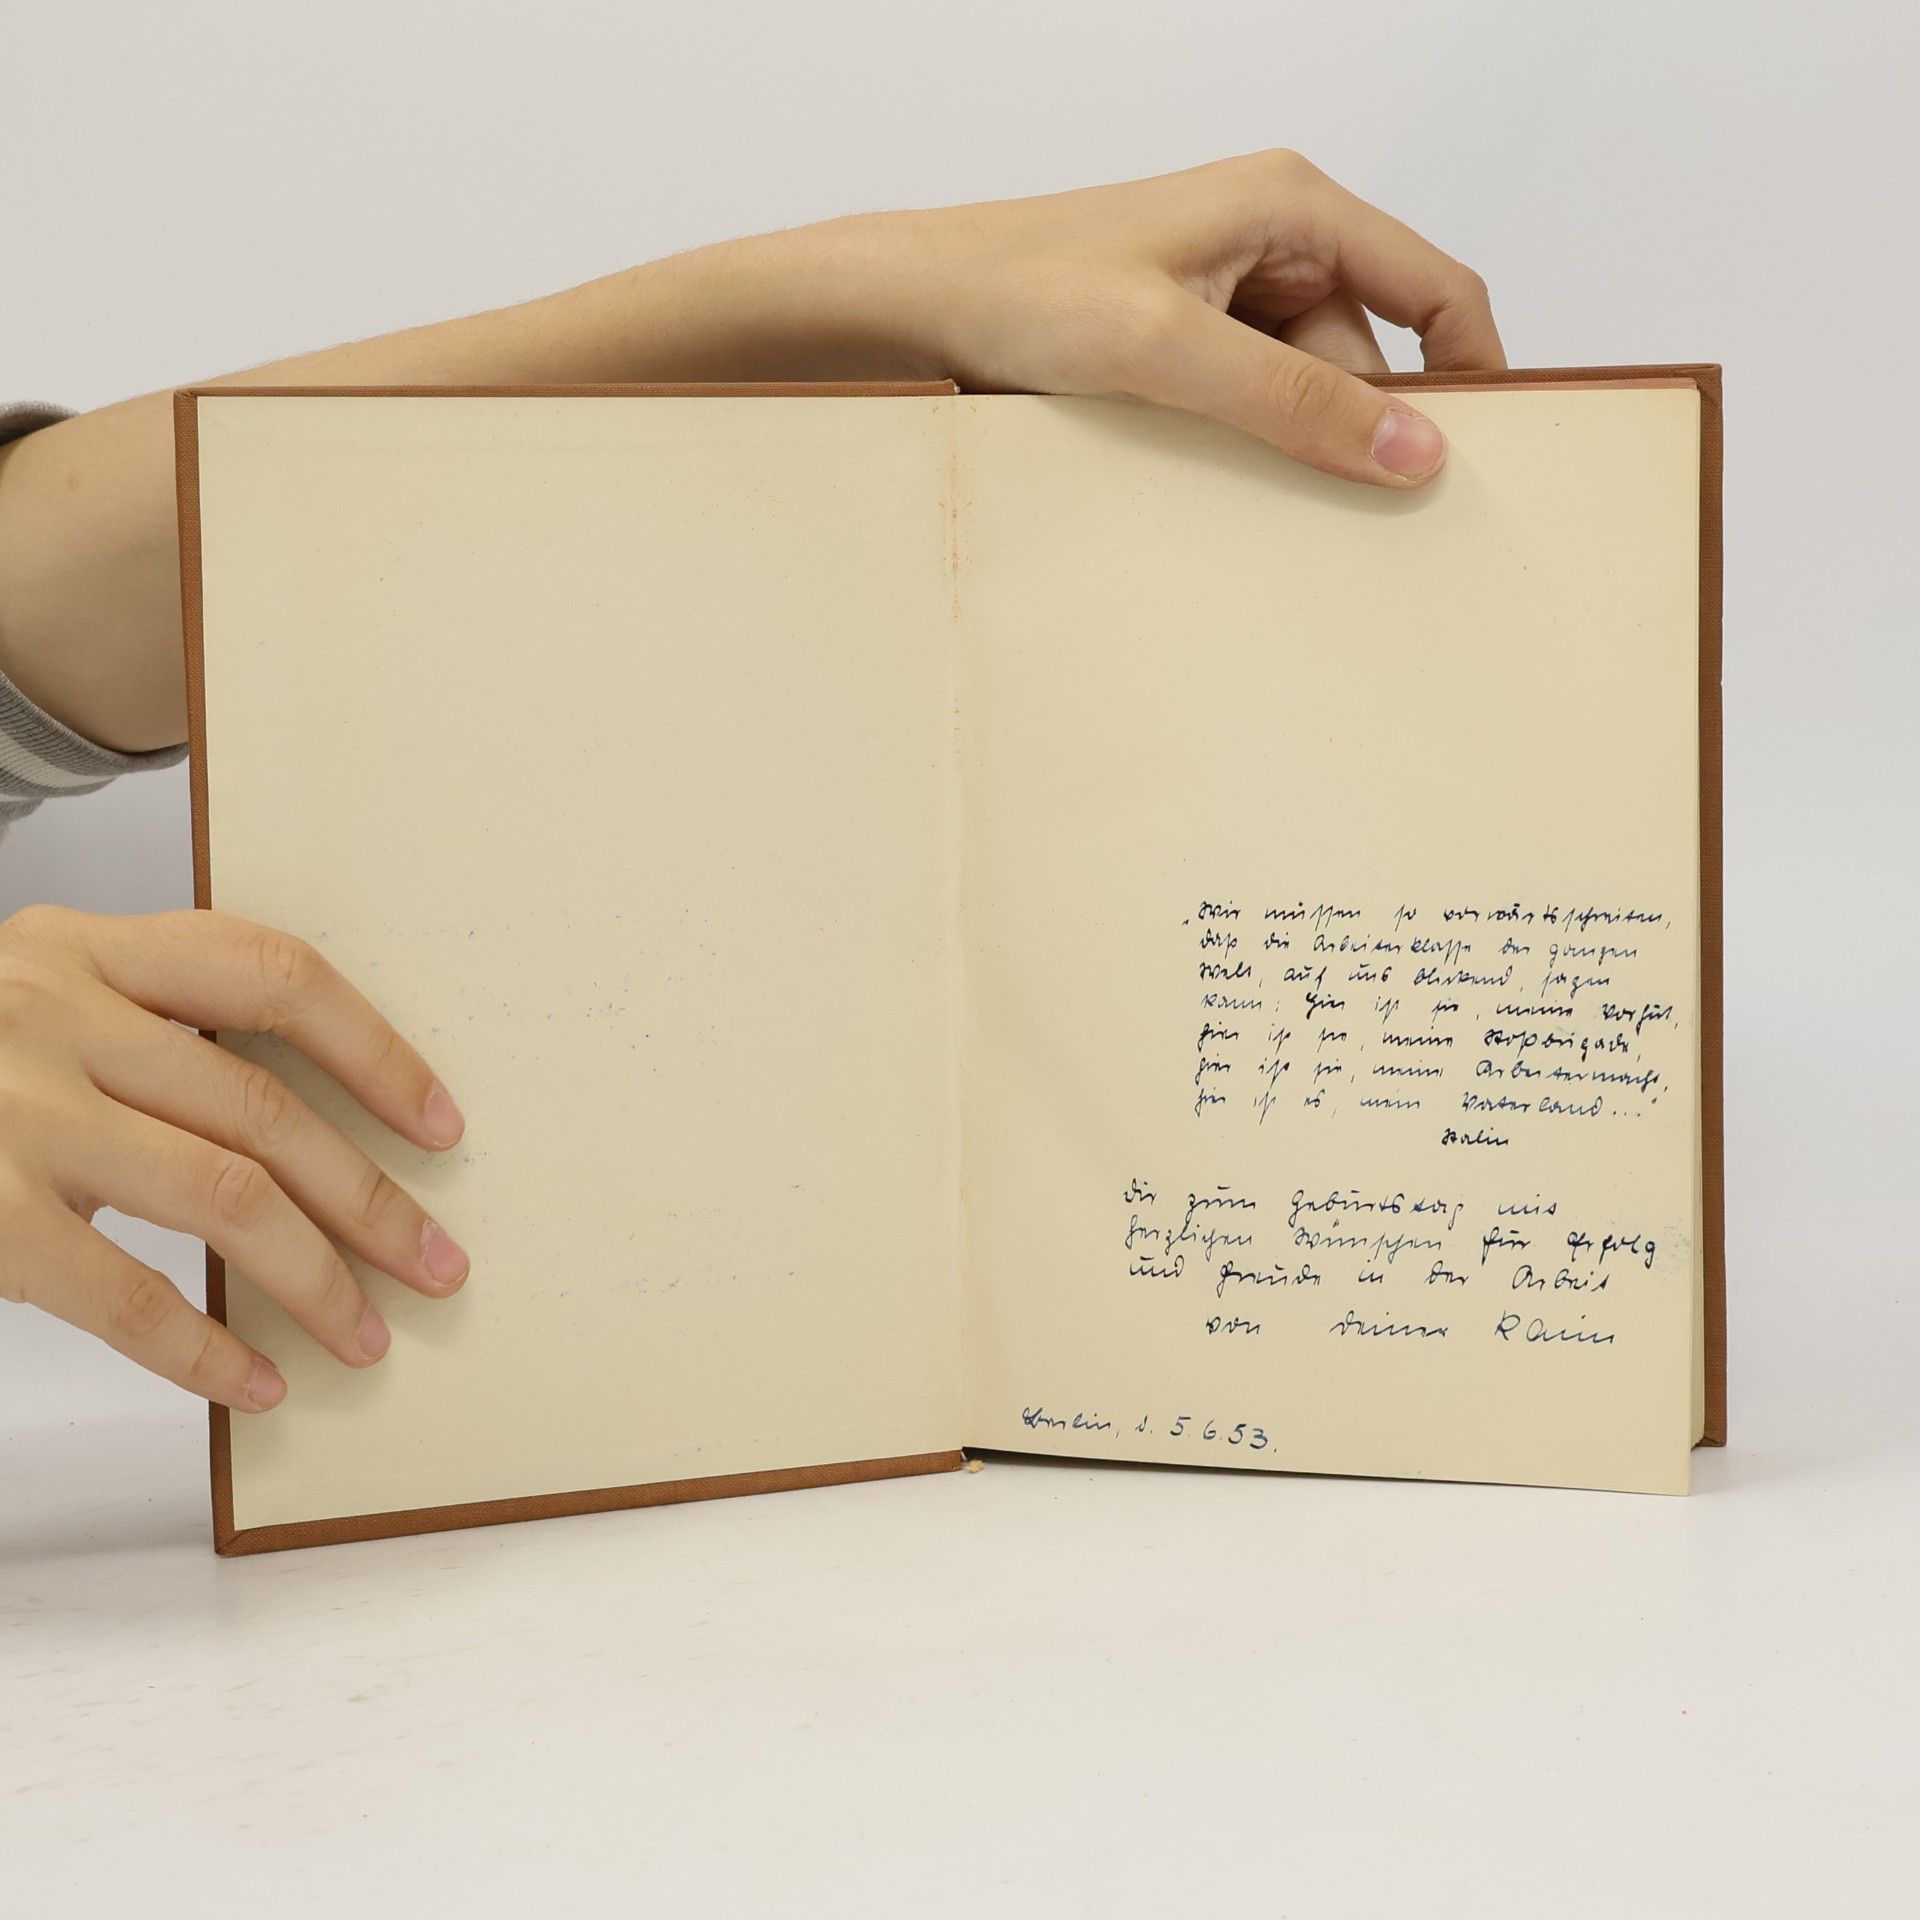 „Wir müssen so vorwärtsschreiten,
daß die Arbeiterklasse der ganzen
Welt, auf uns blickend, sagen
kann: Hier ist sie, meine Vorhut,
hier ist sie, meine Stoßbrigade,
hier ist sie, meine Arbeitermacht,
hier ist es, mein Vaterland..."
Stalin
Dir zum Geburtstag mit
herzlichen Wünschen für Erfolg
und Freude in der Arbeit
von deiner
Berlin, d. 5.6.53.